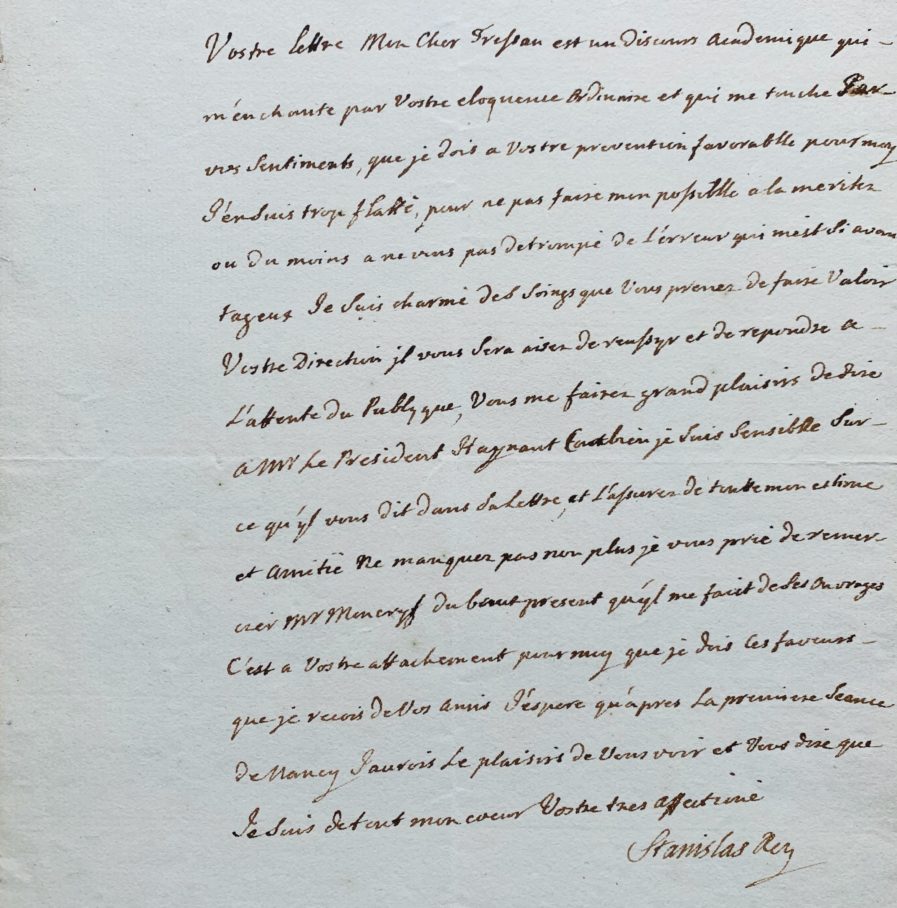 Vostre lettre Mon Cher Tressan est un discours Academique qui -
m'enchante par Vostre eloquence Ordinaire et qui me touche Par -
vos Sentiments, que je dois a Vostre prevention favorablle pour moy
J'en Suis trop flatté, pour ne pas faire mon possiblle a la meriter
ou du moins a ne vous pas detrompé de L'erreur qui m'est Si avan
tageux Je Suis charmé des Soings que Vous prenez de faire Valoir
Vostre Direction jl vous Sera aisez de reussyr et de repondre a -
L'attente du Publyque, Vous me fairez grand plaisirs de dire
a Mr Le President Haynaut Combien je Suis Sensiblle Sur -
ce qu'yl vous dit dans Sa Lettre, et L'assurer de toutte mon estime
et Amitié Ne manquez pas non plus je vous prie de remer-
cier Mr Moncryf du beaut present qu'yl me fait de Ses Ouvrages
C'est a Vostre attachement pour moy que je dois Ces faveurs -
que je recois de Vos Amis J'espere qu'apres La premiere Seance
de Nancy J'aurois Le plaisirs de Vous voir et Vous dire que
Je Suis de tout mon coeur Vostre tres affectioné
Stanislas Roy